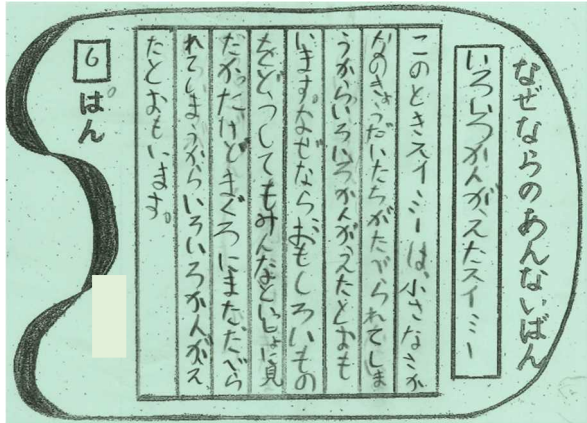 なぜならのあんないばん
いろいろかんがえたスイミー
このときスイミーは、小さなさか
なのきょうだいたちがたべられてしま
うからいろいろかんがえたとおも
います。なぜなら、おもしろいもの
をどうしてもみんなといっしょに見
たかったけどまぐろにまた、たべら
れてしまうからいろいろかんがえ
たとおもいます。
6ぱん